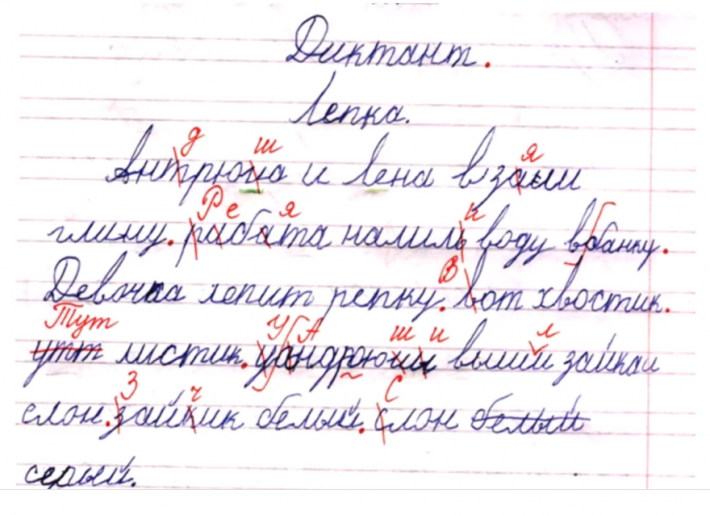 Диктант.
Лепка.
Антрюша и Лена взали
глину. рабата налиль воду вобанку.
Девочка лепит репку. вот хвостик.
утт листик. уандрюши выший зайкаи
слон. зайкик белый. слон белый
серый.